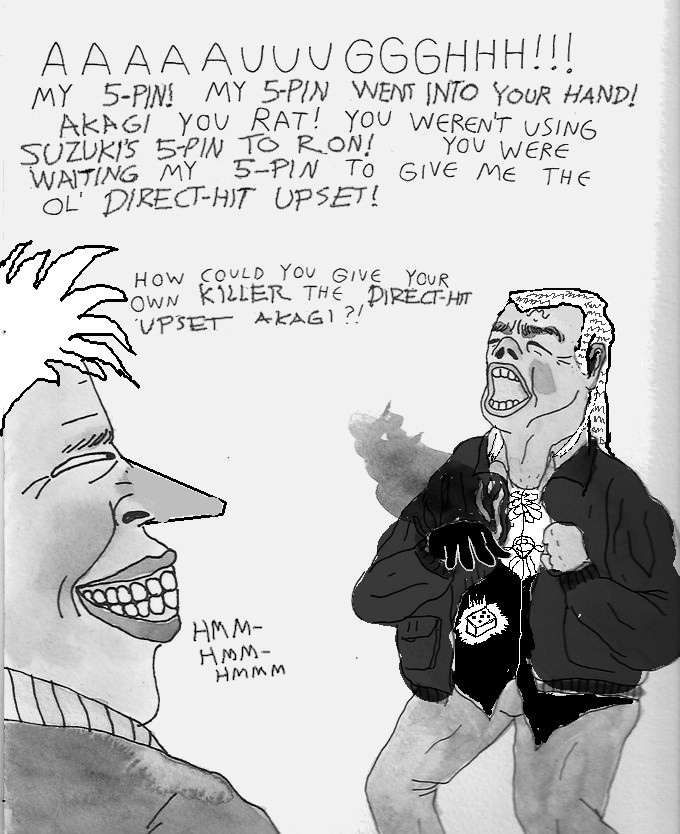 AAAAAUUUGGGHHH!!!
MY 5-PIN! MY 5-PIN WENT INTO YOUR HAND!
AKAGI YOU RAT! YOU WEREN'T USING
SUZUKI'S 5-PIN TO RON! YOU WERE
WAITING MY 5-PIN TO GIVE ME THE
OL' DIRECT-HIT UPSET!
HOW COULD YOU GIVE YOUR
OWN KILLER THE DIRECT-HIT
UPSET AKAGI?!
HMM-
HMM-
HMMM